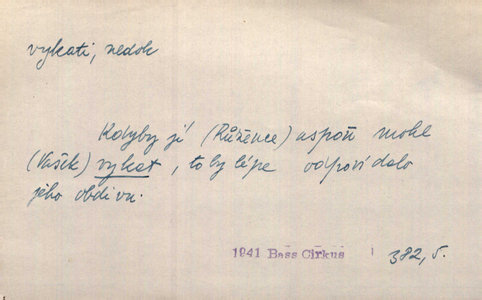 vykati, nedok
Kdyby jí (Růžence) aspoň mohl
(Vašek) vykat, to by lépe odpovídalo
jeho obdivu.
1941 Bass Cirkus 382, 5.